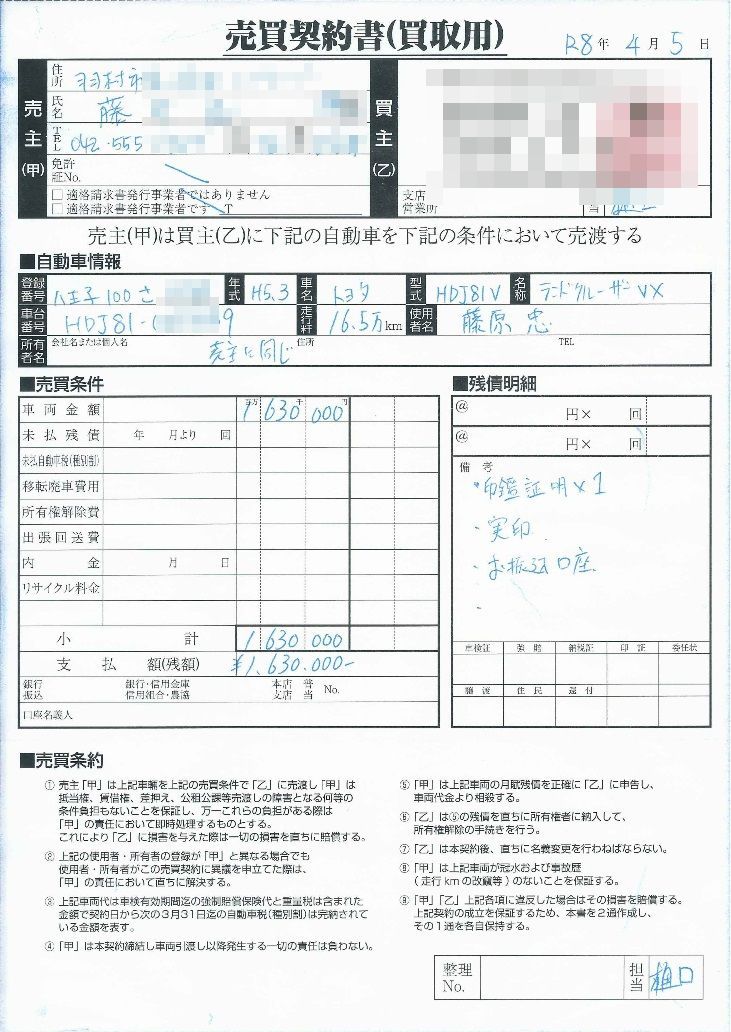 売買契約書(買取用)
R8年 4月 5日
売主(甲)
住所 羽村市
氏名 藤
TEL 042-555
免許証No.
□ 適格請求書発行事業者ではありません
□ 適格請求書発行事業者です T
買主(乙)
支店
営業所
担当
売主(甲)は買主(乙)に下記の自動車を下記の条件において売渡する
■自動車情報
登録番号 八王子100さ 年式 H5.3 車名 トヨタ 型式 HDJ81V 名称 ランドクルーザーVX
車台番号 HDJ81- 9 走行粁 16.5万km 使用者名 藤原 忠
所有者名 会社名または個人名 売主に同じ 住所 TEL
■売買条件
百万 千 円
車両金額 1 630 000
未払残債 年 月より 回
未払自動車税(種別割)
移転廃車費用
所有権解除費
出張回送費
内金 月 日
リサイクル料金
小計 1 630 000
支払額(残額) ¥1,630,000-
銀行振込 銀行・信用金庫 信用組合・農協 本店 支店 普 当 No.
口座名義人
■残債明細
@ 円× 回
@ 円× 回
備考
・印鑑証明×1
・実印
・お振込口座
・
車検証 強賠 納税証 印証 委任状
譲渡 住民 還付
■売買条約
① 売主「甲」は上記車輛を上記の売買条件で「乙」に売渡し「甲」は
抵当権、賃借権、差押え、公租公課等売渡しの障害となる何等の
条件負担もないことを保証し、万一これらの負担がある際は
「甲」の責任において即時処理するものとする。
これにより「乙」に損害を与えた際は一切の損害を直ちに賠償する。
② 上記の使用者・所有者の登録が「甲」と異なる場合でも
使用者・所有者がこの売買契約に異議を申立てた際は、
「甲」の責任において直ちに解決する。
③ 上記車両代は車検有効期間迄の強制賠償保険代と重量税は含まれた
金額で契約日から次の3月31日迄の自動車税(種別割)は完納されて
いる金額を表す。
④ 「甲」は本契約締結し車両引渡し以降発生する一切の責任は負わない。
⑤ 「甲」は上記車両の月賦残債を正確に「乙」に申告し、
車両代金より相殺する。
⑥ 「乙」は⑤の残債を直ちに所有権者に納入して、
所有権解除の手続きを行う。
⑦ 「乙」は本契約後、直ちに名義変更を行わねばならない。
⑧ 「甲」は上記車両が冠水および事故歴
(走行kmの改竄等)のないことを保証する。
⑨ 「甲」「乙」上記各項に違反した場合はその損害を賠償する。
上記契約の成立を保証するため、本書を2通作成し、
その1通を各自保持する。
整理No. 担当 樋口